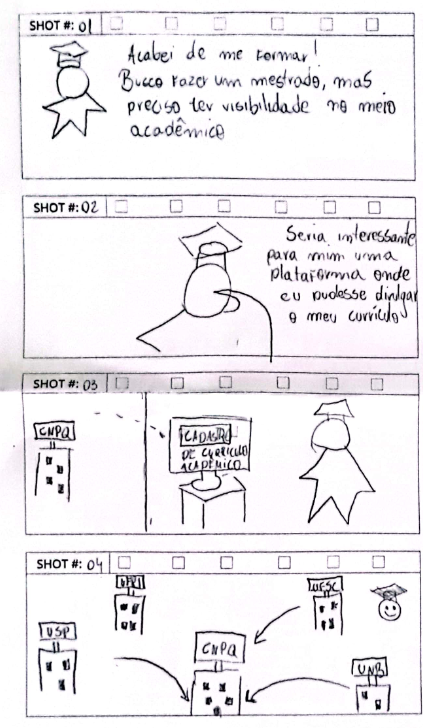 SHOT #: 01
Acabei de me formar!
Busco fazer um mestrado, mas
preciso ter visibilidade no meio
acadêmico
SHOT #: 02
Seria interessante
para mim uma
plataforma onde
eu pudesse divulgar
o meu currículo
SHOT #: 03
CNPQ
CADASTRO
DE CURRICULO
ACADÊMICO
SHOT #: 04
UFRJ
UFSC
USP
CNPQ
UNB